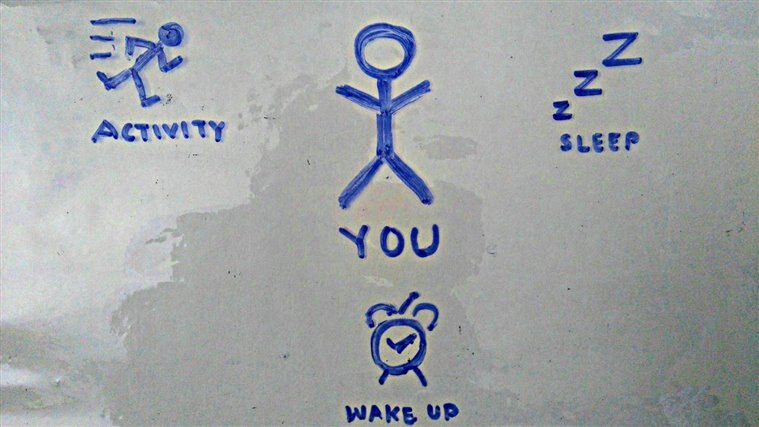 ACTIVITY
Z
Z
Z
SLEEP
YOU
WAKE UP